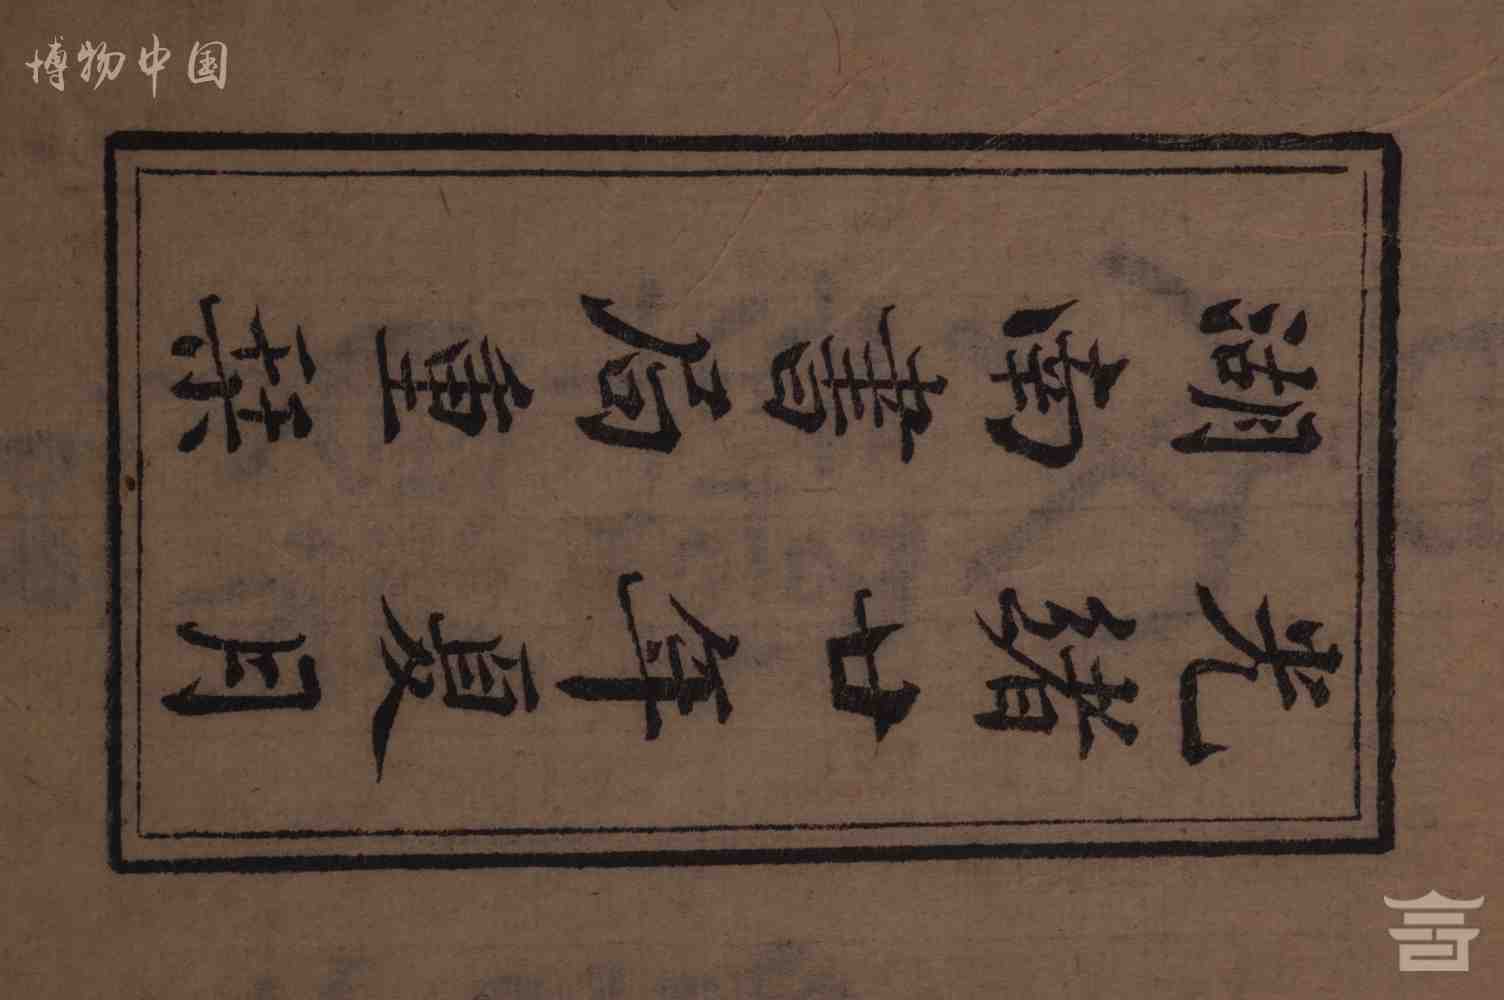 博物中国
光緒廿年夏月
湖南書局重栞